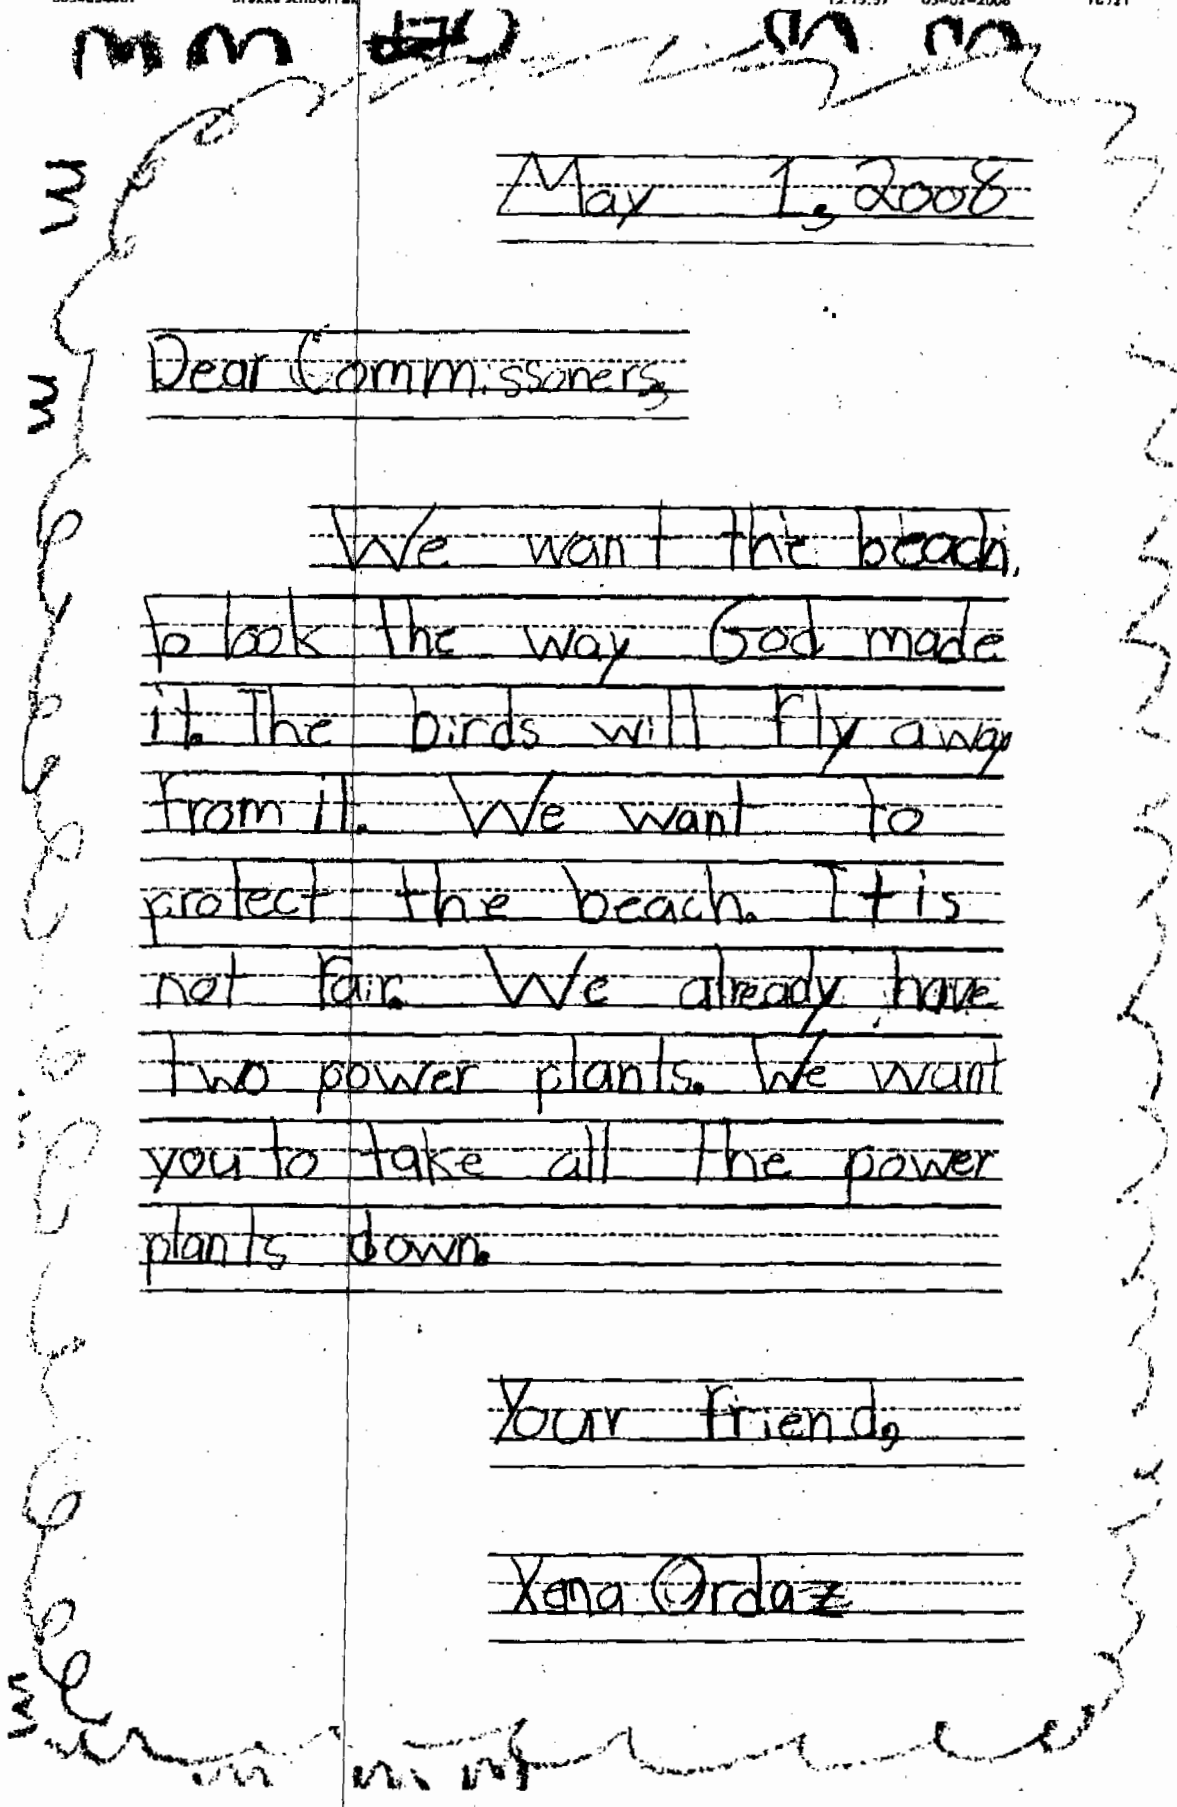 May 1, 2008
Dear Commissoners,
We want the beach
to look the way God made
it. The birds will fly away
from it. We want to
protect the beach. It is
not fair. We already have
two power plants. We want
you to take all the power
plants down.
Your friend,
Xena Ordaz